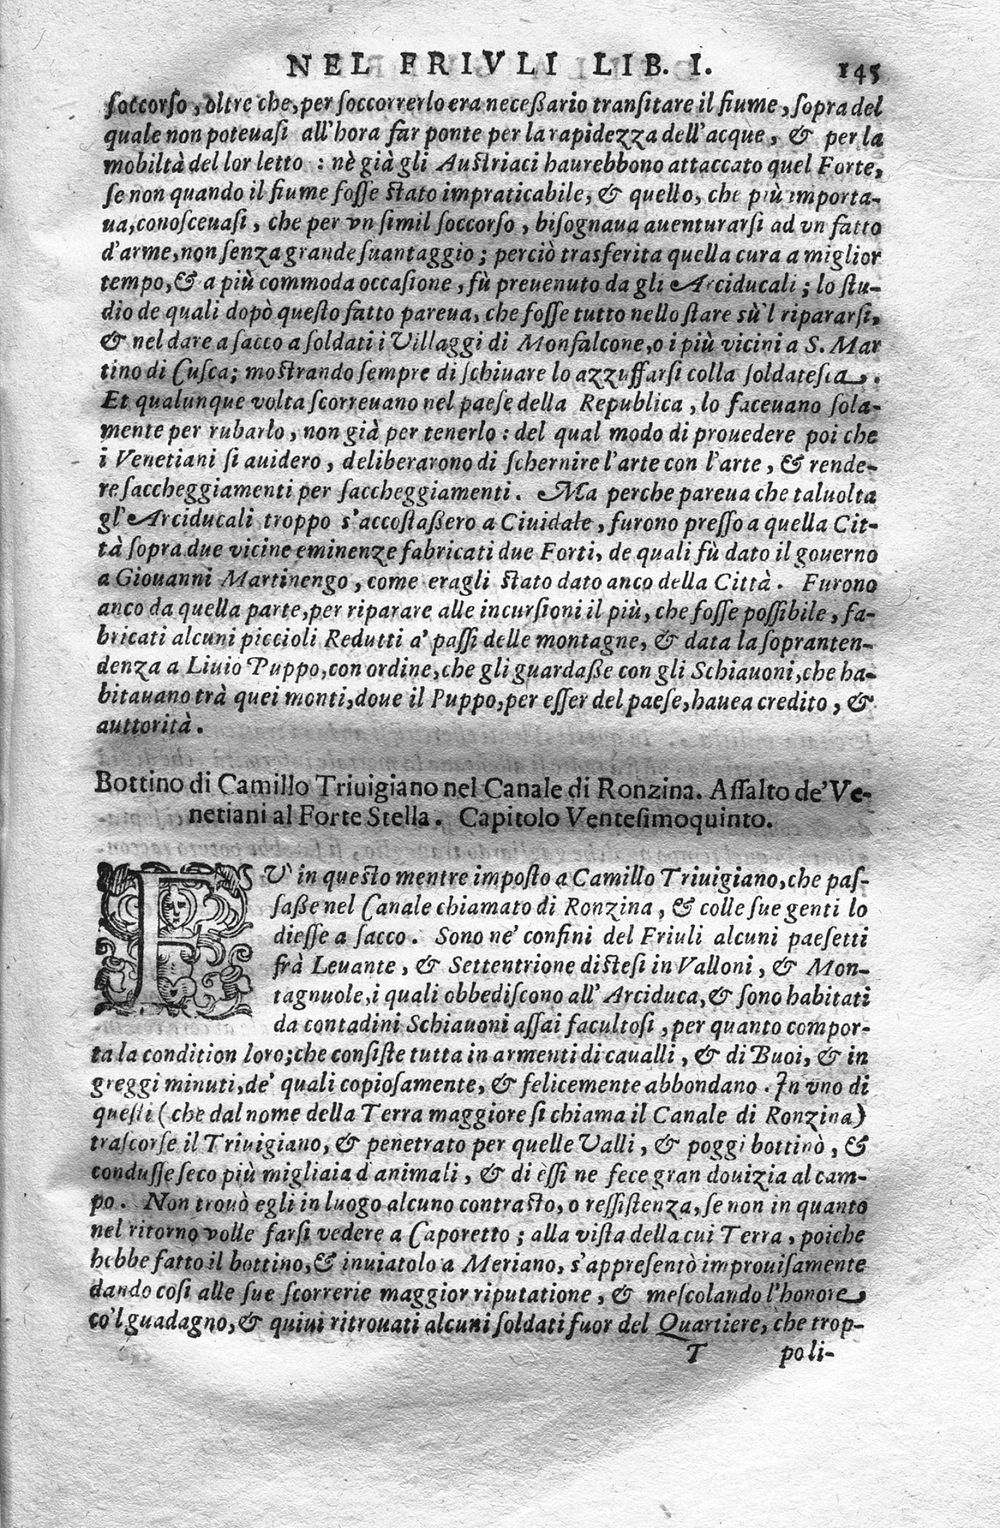 NEL FRIVLI LIB. I. 145
soccorso, oltre che, per soccorrerlo era neceßario transitare il fiume, sopra del
quale non poteuasi all'hora far ponte per la rapidezza dell'acque, & per la
mobiltà del lor letto : nè già gli Austriaci haurebbono attaccato quel Forte,
se non quando il fiume fosse stato impraticabile, & quello, che più importa-
ua, conosceuasi, che per vn simil soccorso, bisognaua auenturarsi ad vn fatto
d'arme, non senza grande suantaggio; perciò trasferita quella cura a miglior
tempo, & a più commoda occasione, fù preuenuto da gli Arciducali; lo stu-
dio de quali dopò questo fatto pareua, che fosse tutto nello stare sù'l ripararsi,
& nel dare a sacco a soldati i Villaggi di Monfalcone, o i più vicini a S. Mar
tino di Cusca; mostrando sempre di schiuare lo azzuffarsi colla soldatesca.
Et qualunque volta scorreuano nel paese della Republica, lo faceuano sola-
mente per rubarlo, non già per tenerlo : del qual modo di prouedere poi che
i Venetiani si auidero, deliberarono di schernire l'arte con l'arte, & rende-
re saccheggiamenti per saccheggiamenti. Ma perche pareua che taluolta
gl'Arciducali troppo s'accostaßero a Ciuidale, furono presso a quella Cit-
tà sopra due vicine eminenze fabricati due Forti, de quali fù dato il gouerno
a Giouanni Martinengo, come eragli stato dato anco della Città. Furono
anco da quella parte, per riparare alle incursioni il più, che fosse possibile, fa-
bricati alcuni piccioli Redutti a' passi delle montagne, & data la sopranten-
denza a Liuio Puppo, con ordine, che gli guardaße con gli Schiauoni, che ha-
bitauano trà quei monti, doue il Puppo, per esser del paese, hauea credito, &
auttorità.
Bottino di Camillo Triuigiano nel Canale di Ronzina. Assalto de' Ve-
netiani al Forte Stella. Capitolo Ventesimoquinto.
FV' in questo mentre imposto a Camillo Triuigiano, che pas-
saße nel Canale chiamato di Ronzina, & colle sue genti lo
diesse a sacco. Sono ne' confini del Friuli alcuni paesetti
frà Leuante, & Settentrione distesi in Valloni, & Mon-
tagnuole, i quali obbediscono all' Arciduca, & sono habitati
da contadini Schiauoni assai facultosi, per quanto compor-
ta la condition loro; che consiste tutta in armenti di caualli, & di Buoi, & in
greggi minuti, de' quali copiosamente, & felicemente abbondano. In vno di
questi (che dal nome della Terra maggiore si chiama il Canale di Ronzina)
trascorse il Triuigiano, & penetrato per quelle Valli, & poggi bottinò, &
condusse seco più migliaia d'animali, & di essi ne fece gran douizia al cam-
po. Non trouò egli in luogo alcuno contrasto, o ressistenza, se non in quanto
nel ritorno volle farsi vedere a Caporetto; alla vista della cui Terra, poiche
hebbe fatto il bottino, & inuiatolo a Meriano, s'appresentò improuisamente
dando cosi alle sue scorrerie maggior riputatione, & mescolando l'honore
co'l guadagno, & quiui ritrouati alcuni soldati fuor del Quartiere, che trop-
T poli-